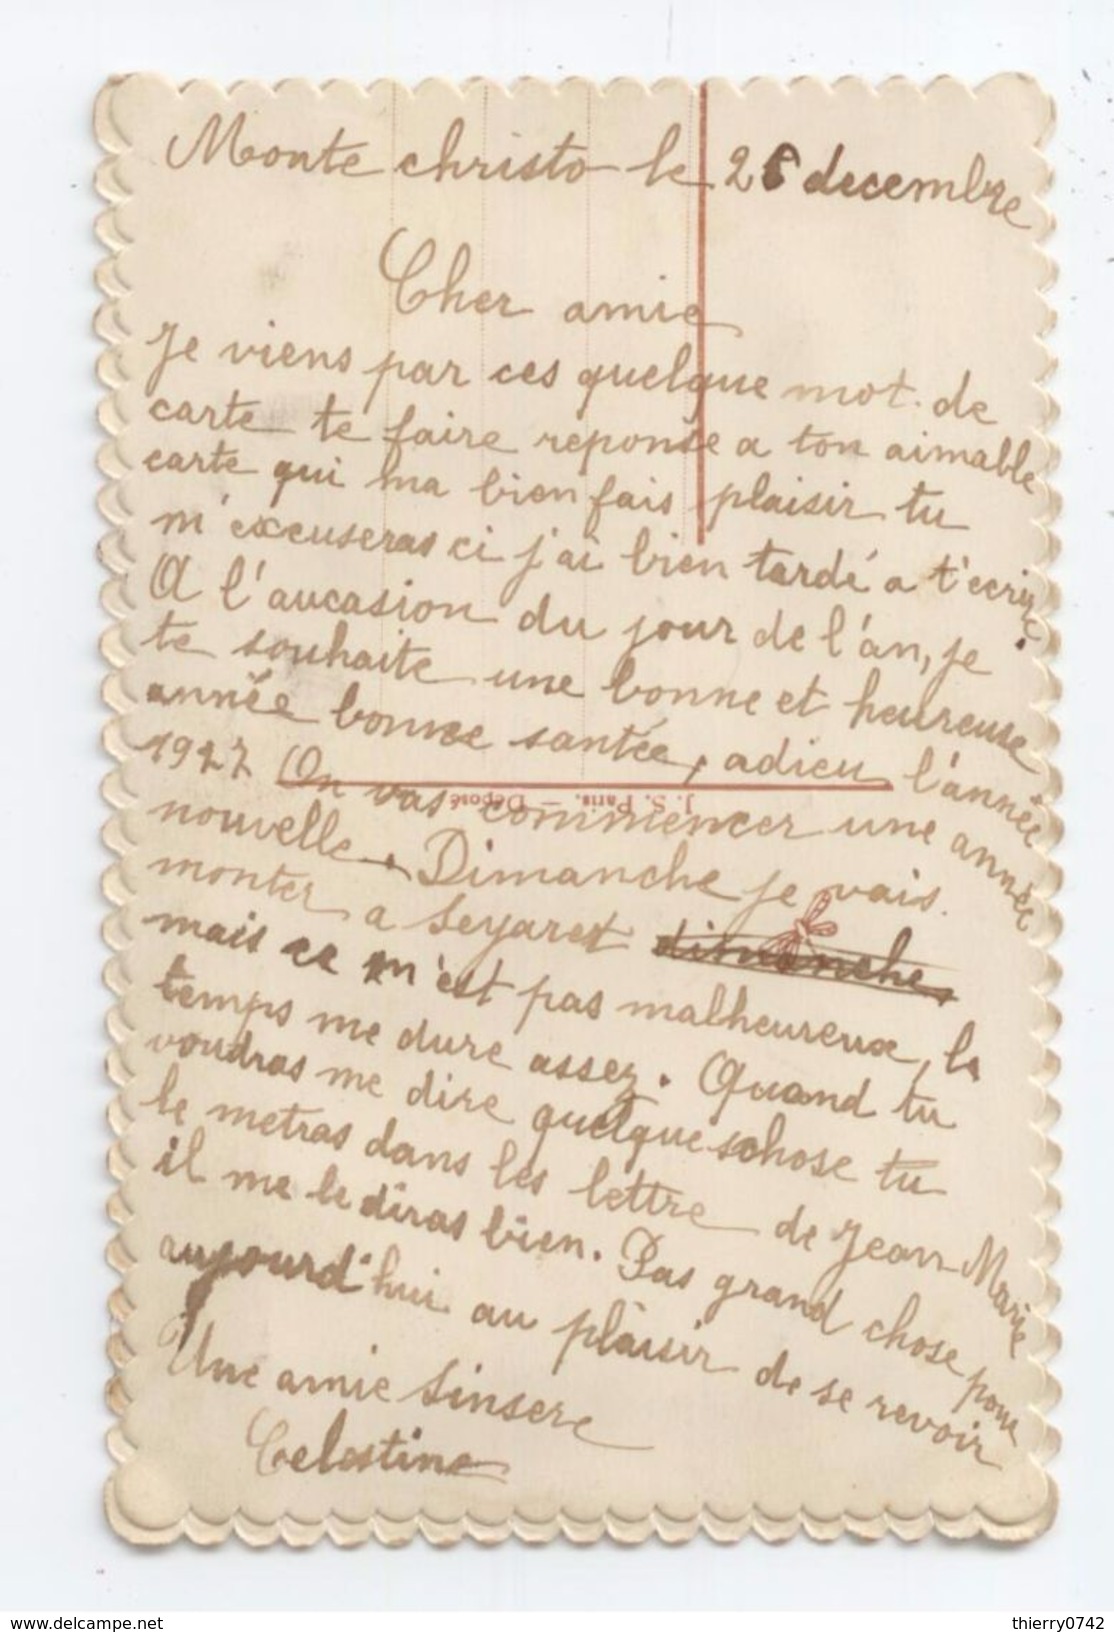 Monte christo le 26 decembre
Cher amie
Je viens par ces quelque mot de
carte te faire reponse a ton aimable
carte qui ma bien fais plaisir tu
m'excuseras ci j'ai bien tardé a t'ecrire.
A l'aucasion du jour de l'an, je
te souhaite une bonne et heureuse
année bonne santée, adieu l'année
1927 On vas commencer une année
J. S. Paris. — Déposé
nouvelle. Dimanche je vais
monter a Seyaret dimanche,
mais ce m'est pas malheureux, le
temps me dure assez. Quand tu
voudras me dire quelque chose tu
le metras dans les lettre de Jean Marie
il me le diras bien. Pas grand chose pour
aujourd'hui au plaisir de se revoir
Une amie sinsere
Celestine
delcampe.net
thierry0742